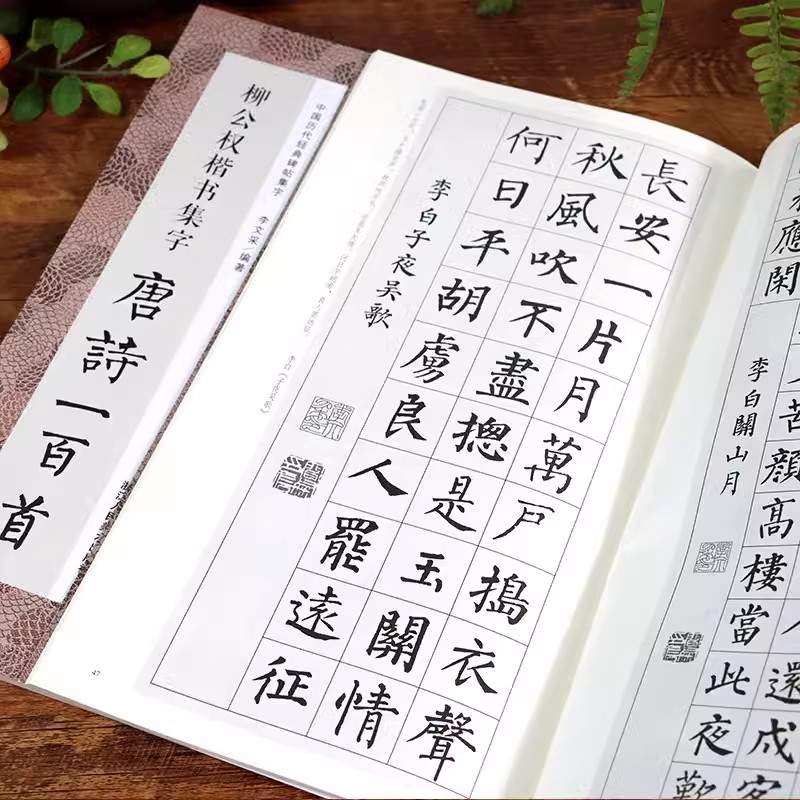 中国历代经典碑帖集字 李文采 编著
柳公权楷书集字
唐詩一百首
長安一片月萬戶搗衣聲
秋風吹不盡摠是玉關情
何日平胡虜良人罷遠征
李白子夜吳歌
李白《子夜吴歌》
47
還戍客
苦顔高樓當此夜歎
應閑
李白關山月